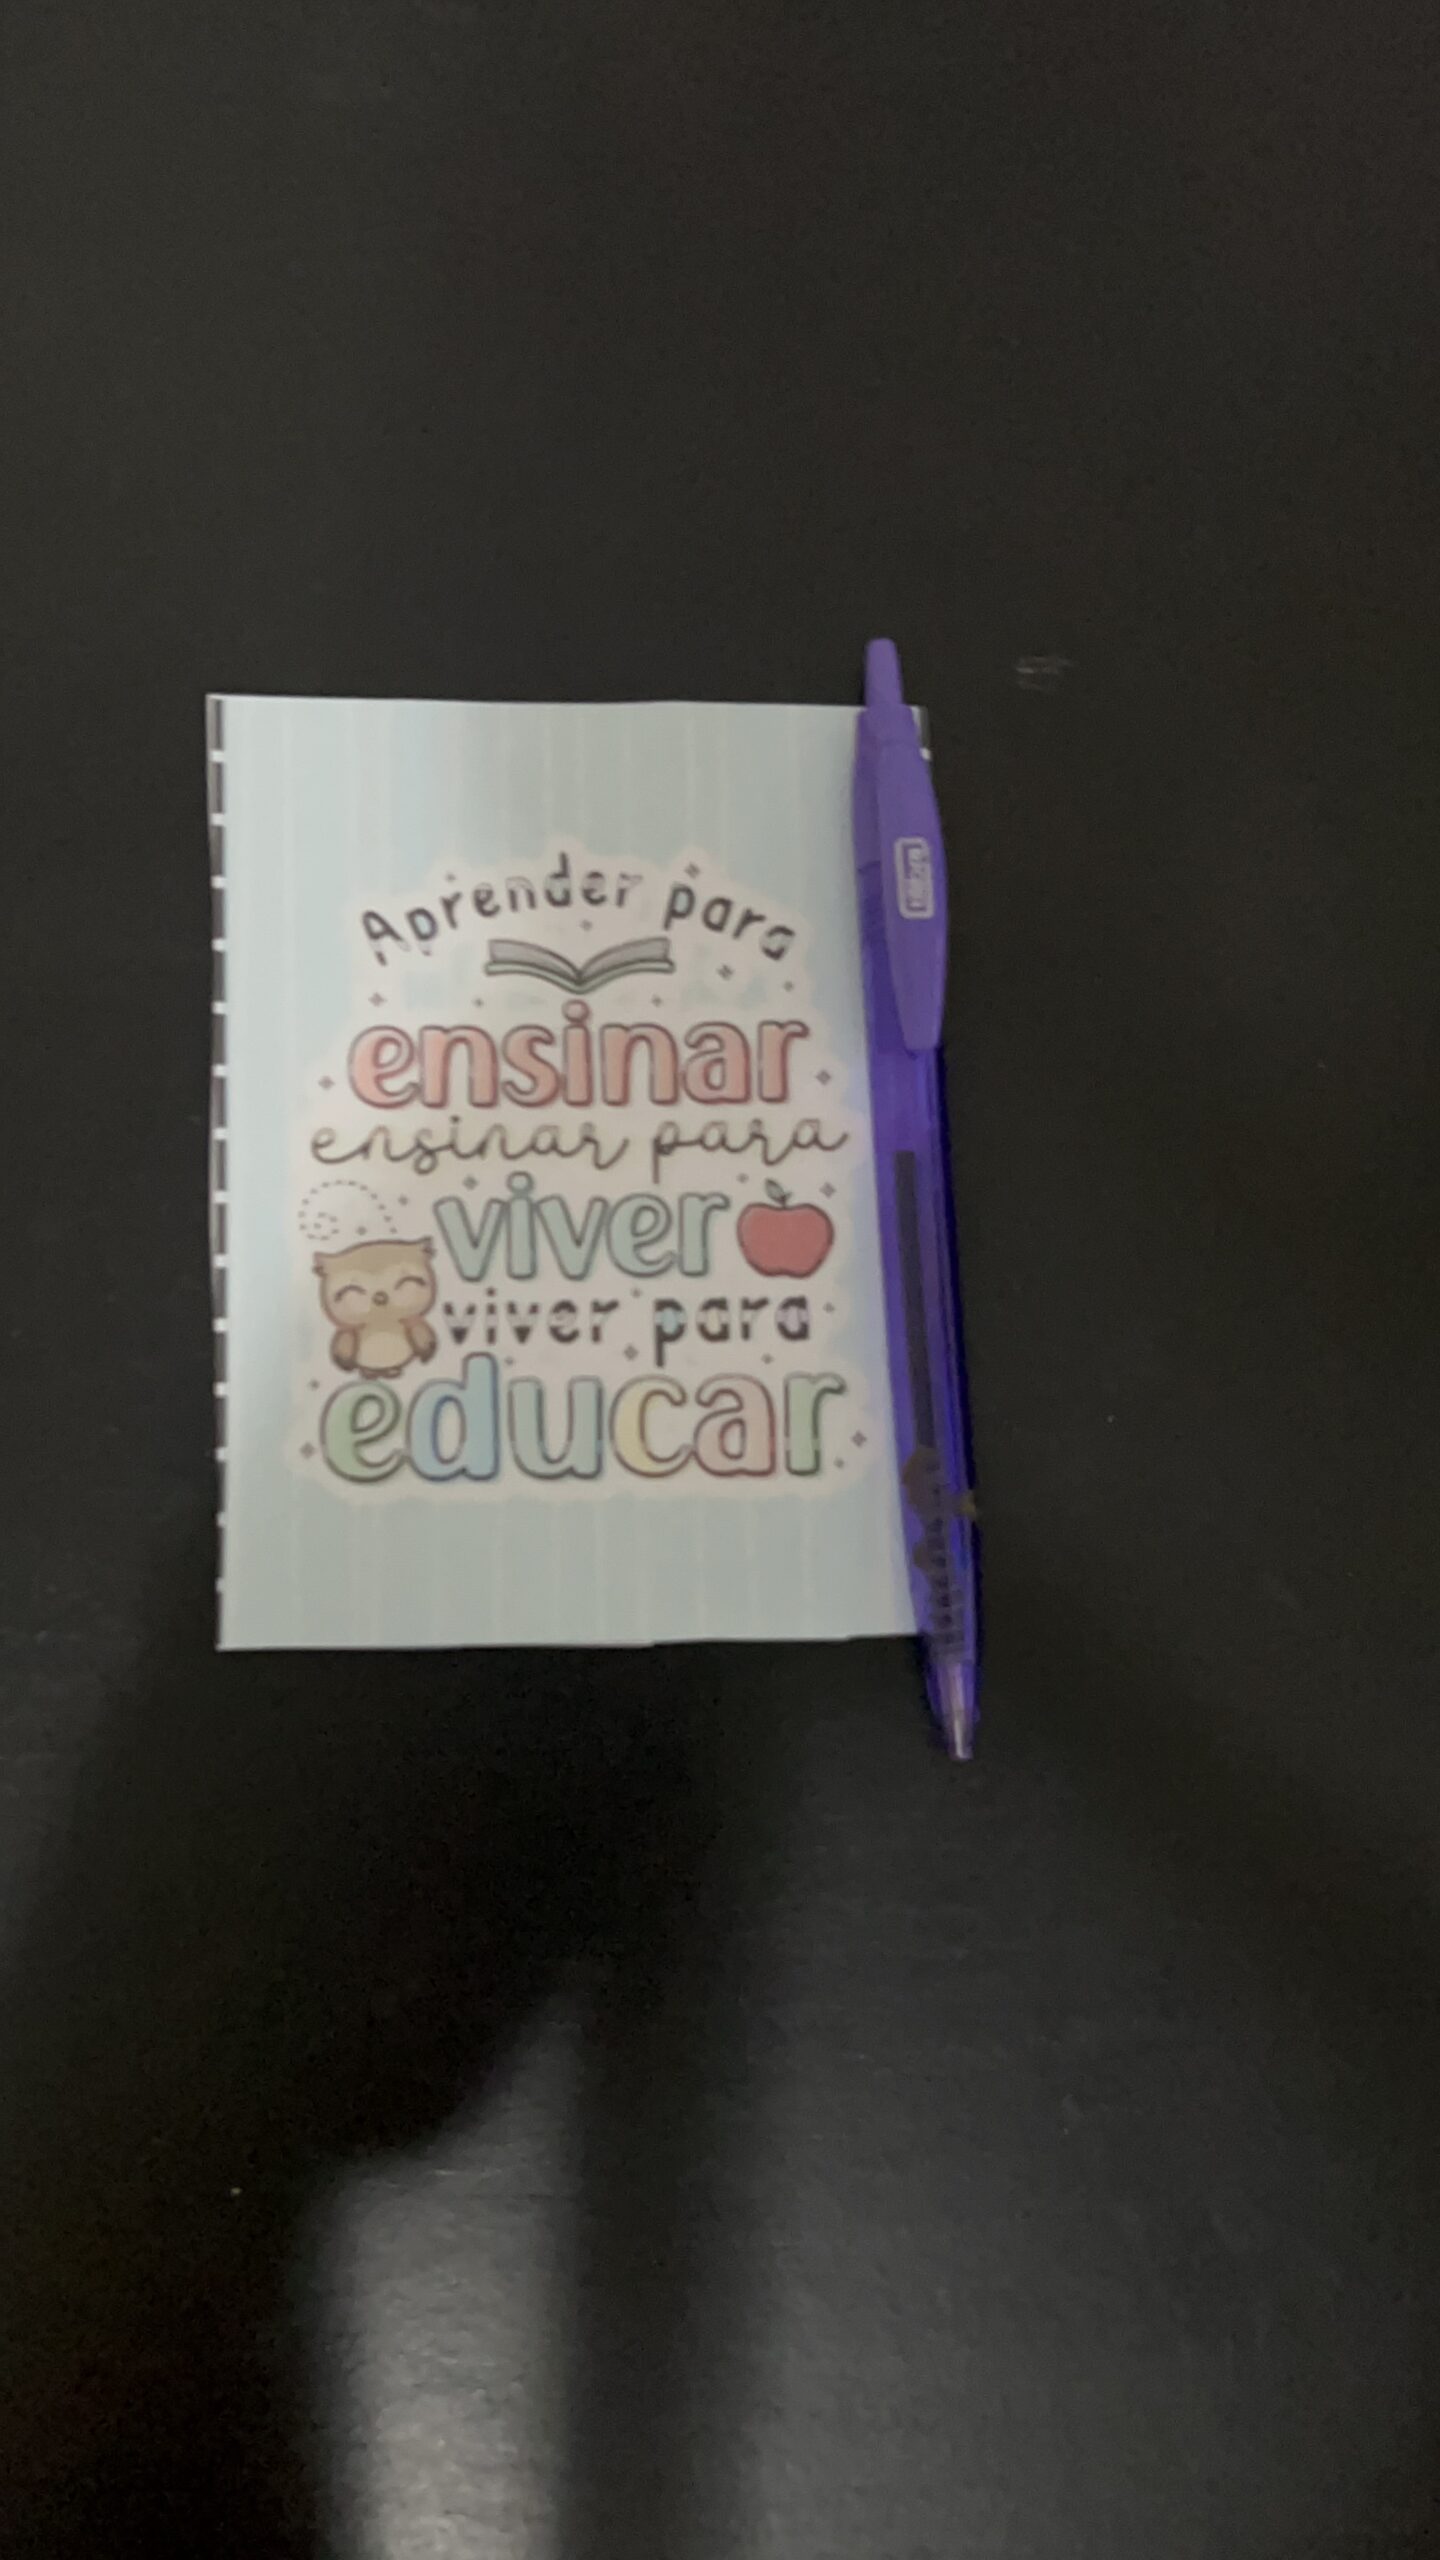 Aprender para
ensinar
ensinar para
viver
viver para
educar